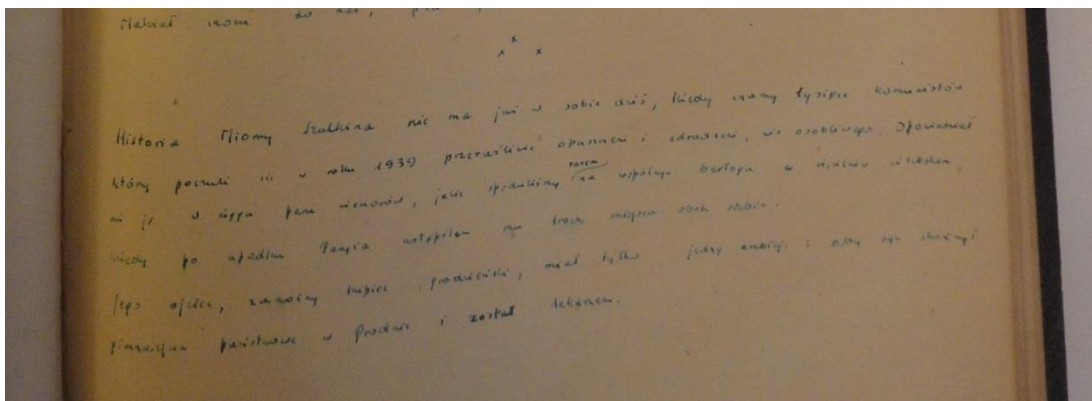 do nas,
x x x
Historia Miomy Szatkina nie ma już w sobie dziś, kiedy znamy tysiące komunistów
którzy poczuli się w roku 1939 przeraźliwie opuszczeni i zdradzeni, nic osobliwego. Opowiedział
mi ją w ciągu paru wieczorów, jakie spędziliśmy razem na wspólnym barłogu w więzieniu witebskim,
kiedy po upadku Paryża ustąpiłem mu trochę miejsca obok siebie.
Jego ojciec, zamożny kupiec grodzieński, miał tylko jedną ambicję: aby syn skończył
gimnazjum państwowe w Grodnie i został lekarzem.